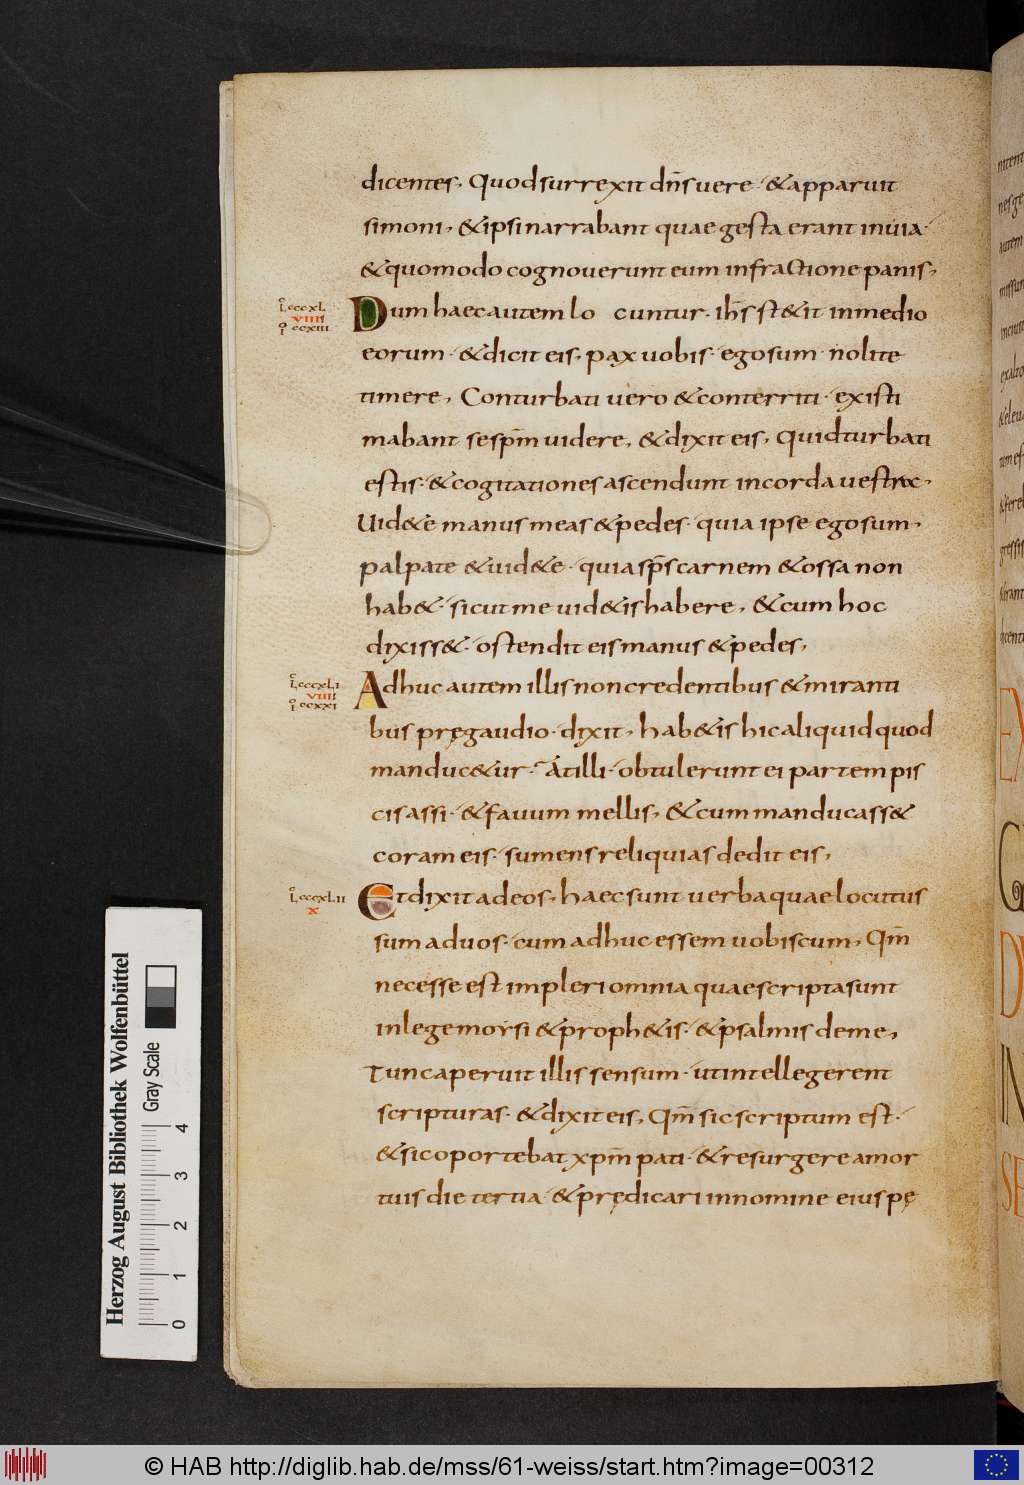 dicentes, Quod surrexit dn̄s uere · & apparuit
simoni, & ipsi narrabant quae gesta erant in uia ·
& quomodo cognouerunt eum in fractione panis,
Lcccxl
Dum haec autem lo cuntur · ih̄s st&it in medio
VIIII
I ccxiii
eorum · & dicit eis, pax uobis · ego sum · nolite
timere, Conturbati uero & conterriti · existi
mabant se sp̄m uidere, & dixit eis, Quid turbati
estis · & cogitationes ascendunt in corda uestra,
Uid&e manus meas & pedes · quia ipse ego sum,
palpate & uid&e · quia sp̄s carnem & ossa non
hab& · sicut me uid&is habere, & cum hoc
dixiss& · ostendit eis manus & pedes,
Lcccxli
Adhuc autem illis non credentibus & miranti
VIIII
I ccxxi
bus prę gaudio · dixit, hab&is hic aliquid quod
manduc&ur · At illi · obtulerunt ei partem pis
cis assi · & fauum mellis, & cum manducass&
coram eis · sumens reliquias dedit eis,
Lcccxlii
Et dixit ad eos, haec sunt uerba quae locutus
X
sum ad uos · cum adhuc essem uobiscum, Qm̄
necesse est impleri omnia quae scripta sunt
in lege moysi & proph&is · & psalmis de me,
Tunc aperuit illis sensum · ut intellegerent
scripturas · & dixit eis, Qm̄ sic scriptum est ·
& sic oportebat xpm̄ pati · & resurgere a mor
tuis die tertia · & prędicari in nomine eius pę
Herzog August Bibliothek Wolfenbüttel
Gray Scale
0 1 2 3 4
© HAB http://diglib.hab.de/mss/61-weiss/start.htm?image=00312